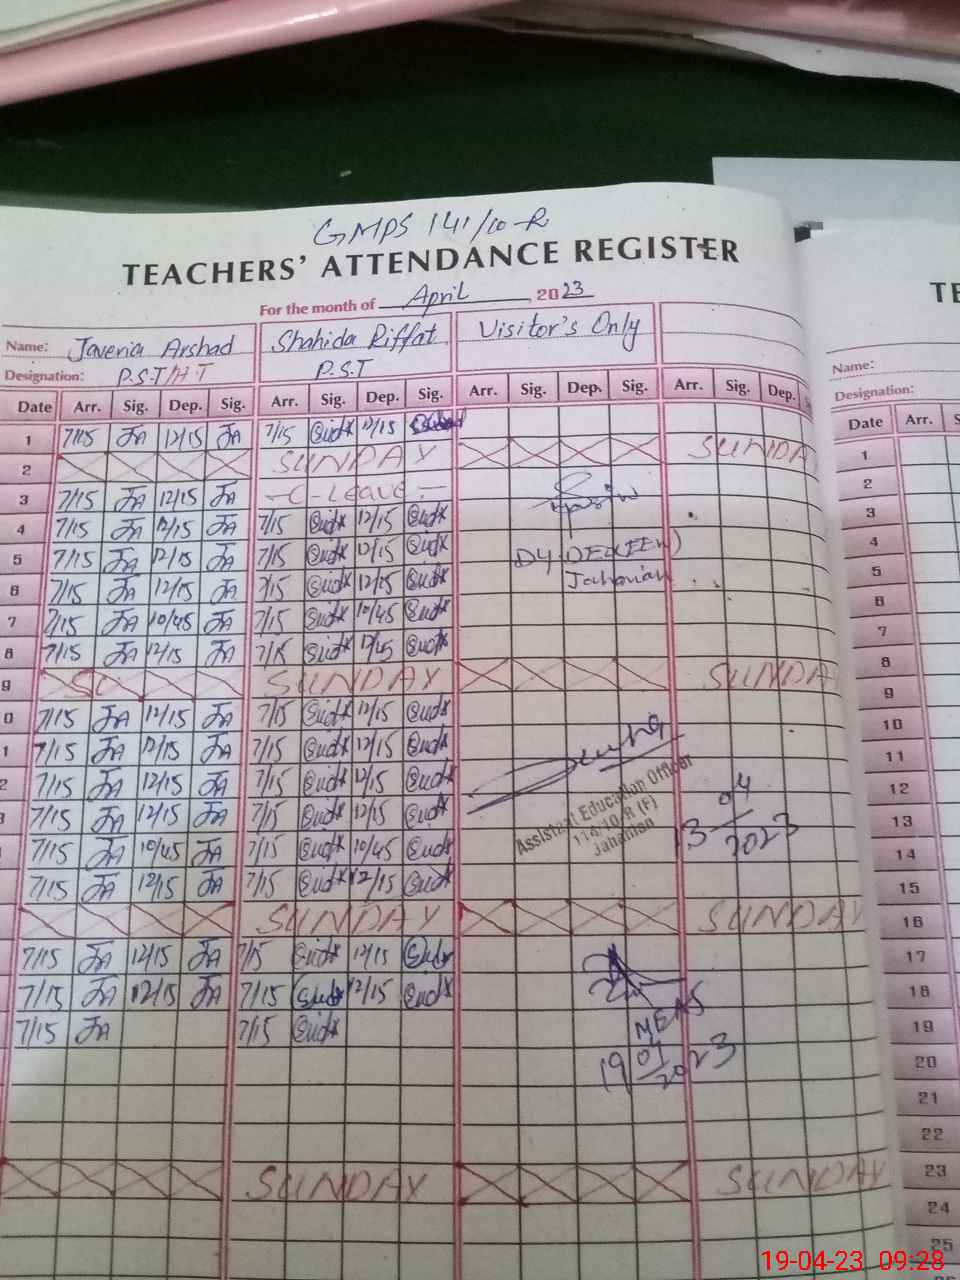 GMPS 141/10-R
TEACHERS' ATTENDANCE REGISTER
For the month of April, 2023
Name: Javeria Arshad Shahida Riffat Visitor's Only
Designation: P.S.T/H.T P.S.T
Date Arr. Sig. Dep. Sig. Arr. Sig. Dep. Sig. Arr. Sig. Dep. Sig. Arr. Sig. Dep.
1 7/15 JA 12/15 JA 7/15 12/15
2 SUNDAY SUNDA
3 7/15 JA 12/15 JA -C-Leave-
4 7/15 JA 12/15 JA 7/15 12/15
5 7/15 JA 12/15 JA 7/15 12/15
6 7/15 JA 12/15 JA 7/15 12/15
Jahanian
7 7/15 JA 10/45 JA 7/15 10/45
8 7/15 JA 12/15 JA 7/15 12/45
9 SU SUNDAY SUNDA
0 7/15 JA 12/15 JA 7/15 12/15
1 7/15 JA 12/15 JA 7/15 12/15
2 7/15 JA 12/15 JA 7/15 12/15
3 7/15 JA 12/15 JA 7/15 12/15
Assistant Education Officer
114/10-R (F)
Jahanian
13 04 2023
7/15 JA 10/45 JA 7/15 10/45
7/15 JA 12/15 JA 7/15 12/15
SUNDAY SUNDAY
7/15 JA 12/15 JA 7/15 12/15
7/15 JA 12/15 JA 7/15 12/15
7/15 JA 7/15
MEAS
19 2023
SUNDAY SUNDAY
TE
Name:
Designation:
Date Arr. S
1
2
3
4
5
6
7
8
9
10
11
12
13
14
15
16
17
18
19
20
21
22
23
24
25
19-04-23 09:28